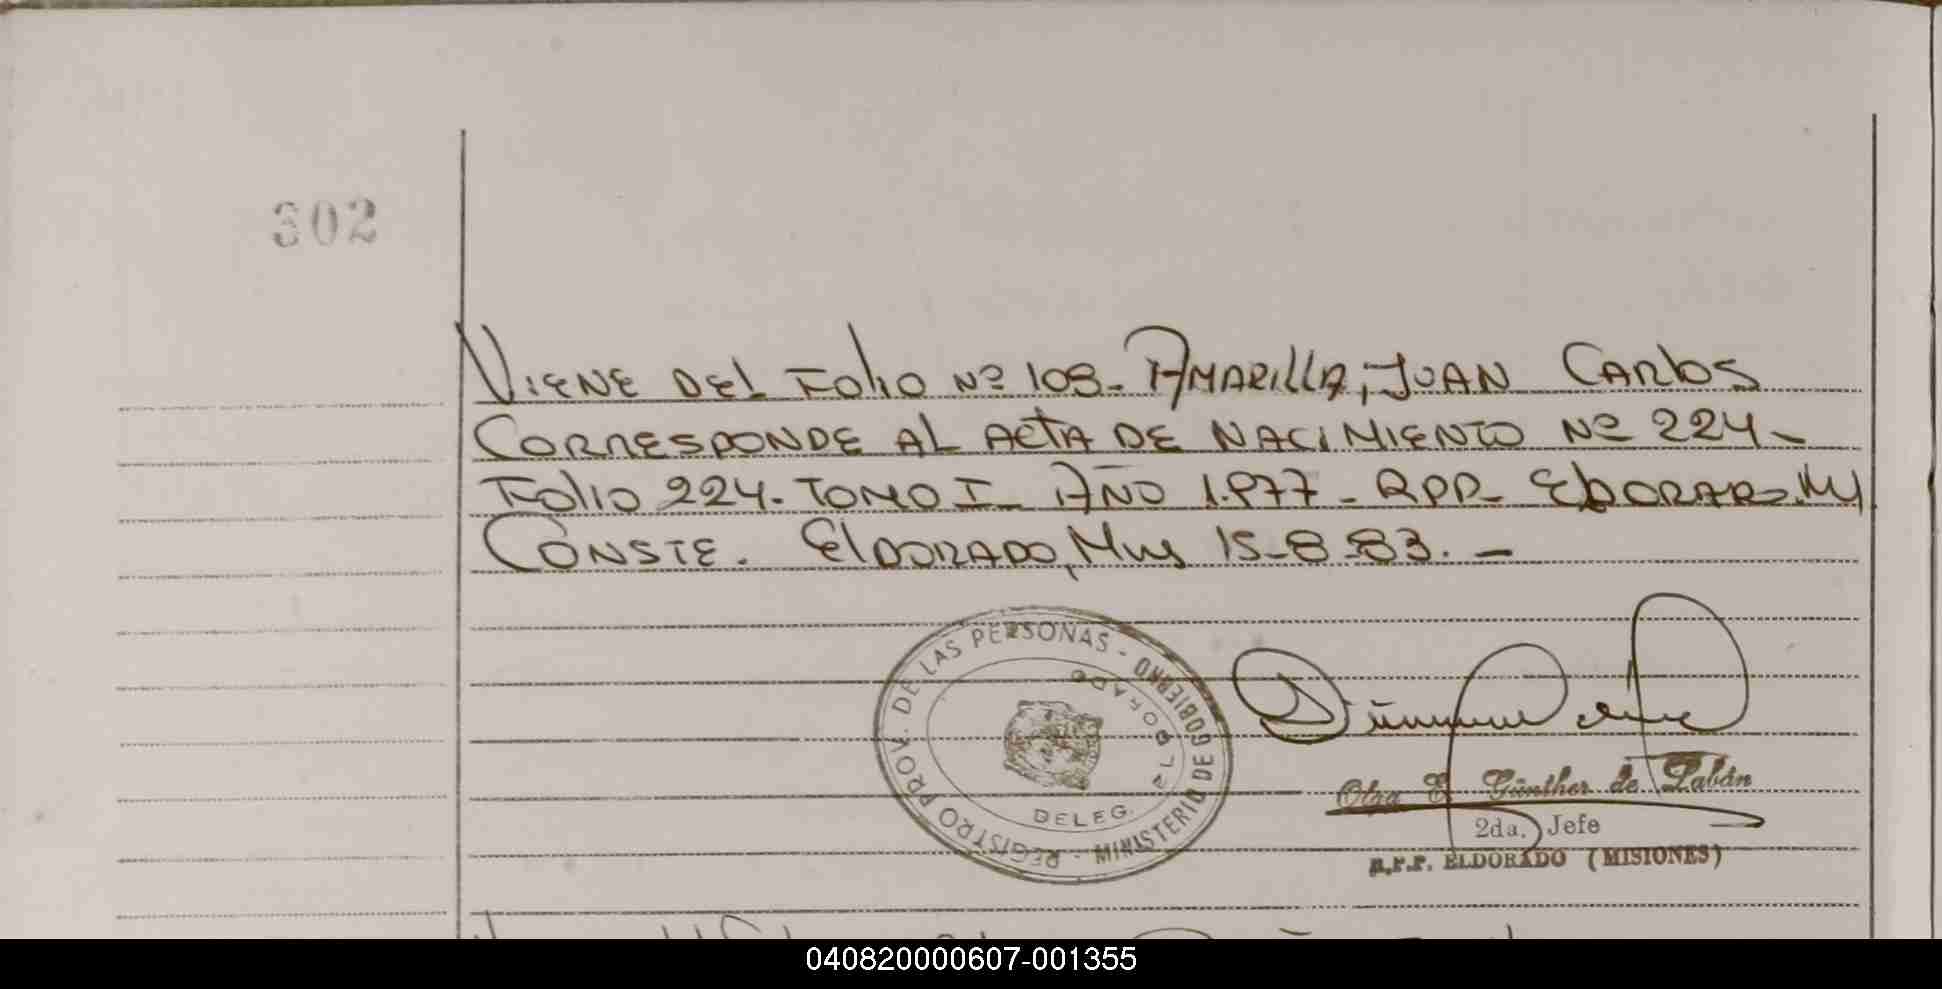 302
VIENE DEL FOLIO Nº 108- AMARILLA, JUAN CARLOS
CORRESPONDE AL ACTA DE NACIMIENTO Nº 224-
FOLIO 224- TOMO I- AÑO 1.977- RPP- ELDORADO, Mns
CONSTE. ELDORADO, Mns 15-8-83.-
REGISTRO PROV. DE LAS PERSONAS - MINISTERIO DE GOBIERNO
DELEG. ELDORADO
Olga E Günther de Pabán
2da. Jefe
R.P.P. ELDORADO (MISIONES)
040820000607-001355